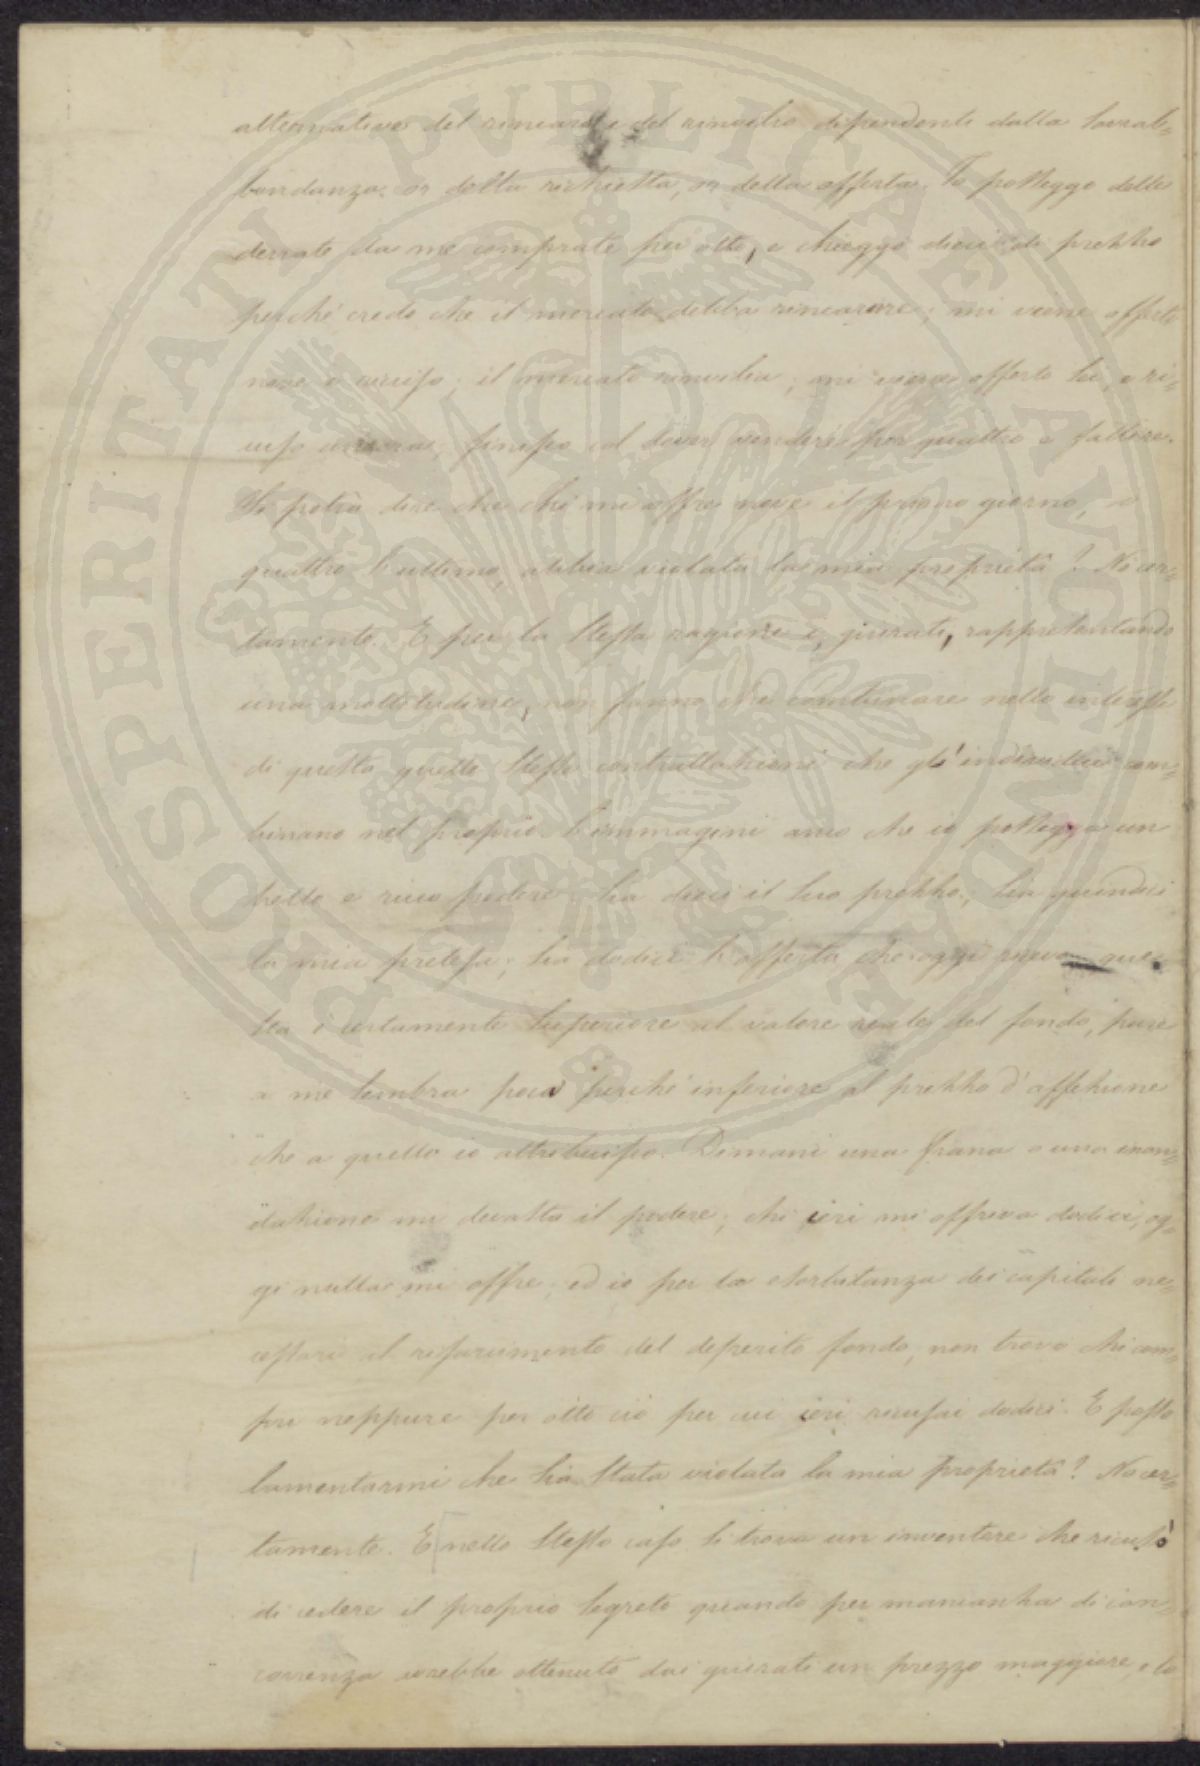 alternative del rincaro e del rinvilio dipendenti dalla sovrab=
bondanza or della richiesta, or della offerta. Io posseggo delle
derrate da me comprate per otto, e chieggo dieci di prezzo
perché credo che il mercato debba rincarare; mi viene offerto
nove e ricuso; il mercato rinvilia; mi viene offerto sei, e ri=
cuso ancora; finisco col dover vendere per quattro e fallire.
Si potrà dire che chi mi offre nove il primo giorno, e
quattro l'ultimo, abbia violata la mia proprietà? No cer=
tamente. E per la stessa ragione i giurati, rappresentando
una moltitudine, non fanno che combinare nello interesse
di questa quelle stesse contrattazioni che gl'individui com=
binano nel proprio. S'immagini anco che io possegga un
bello e ricco podere: sia dieci il suo prezzo; sia quindici
la mia pretesa; sia dodici l'offerta che oggi ricevo que=
sta è certamente superiore al valore reale del fondo, pure
a me sembra poca perché inferiore al prezzo d'affezione
che a quello io attribuisco. Dimani una frana o una inon=
dazione mi devasta il podere; chi ieri mi offriva dodici, og=
gi nulla mi offre; ed io per la esorbitanza dei capitali ne=
cessari al risarcimento del deperito fondo, non trovo chi com=
pri neppure per otto ciò per cui ieri ricusai dodici. E posso
lamentarmi che sia stata violata la mia proprietà? No cer=
tamente. E nello stesso caso si trova un inventore che ricusò
di cedere il proprio segreto quando per mancanza di con=
correnza avrebbe ottenuto dai giurati un prezzo maggiore, e lo